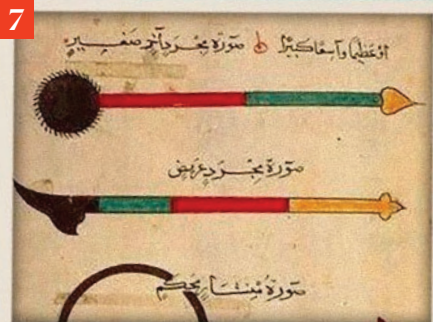 7
أو عظيما وأسعا كبيرا صورة مجرد آخر صغير
صورة مجرد عريض
صورة منشار محكم